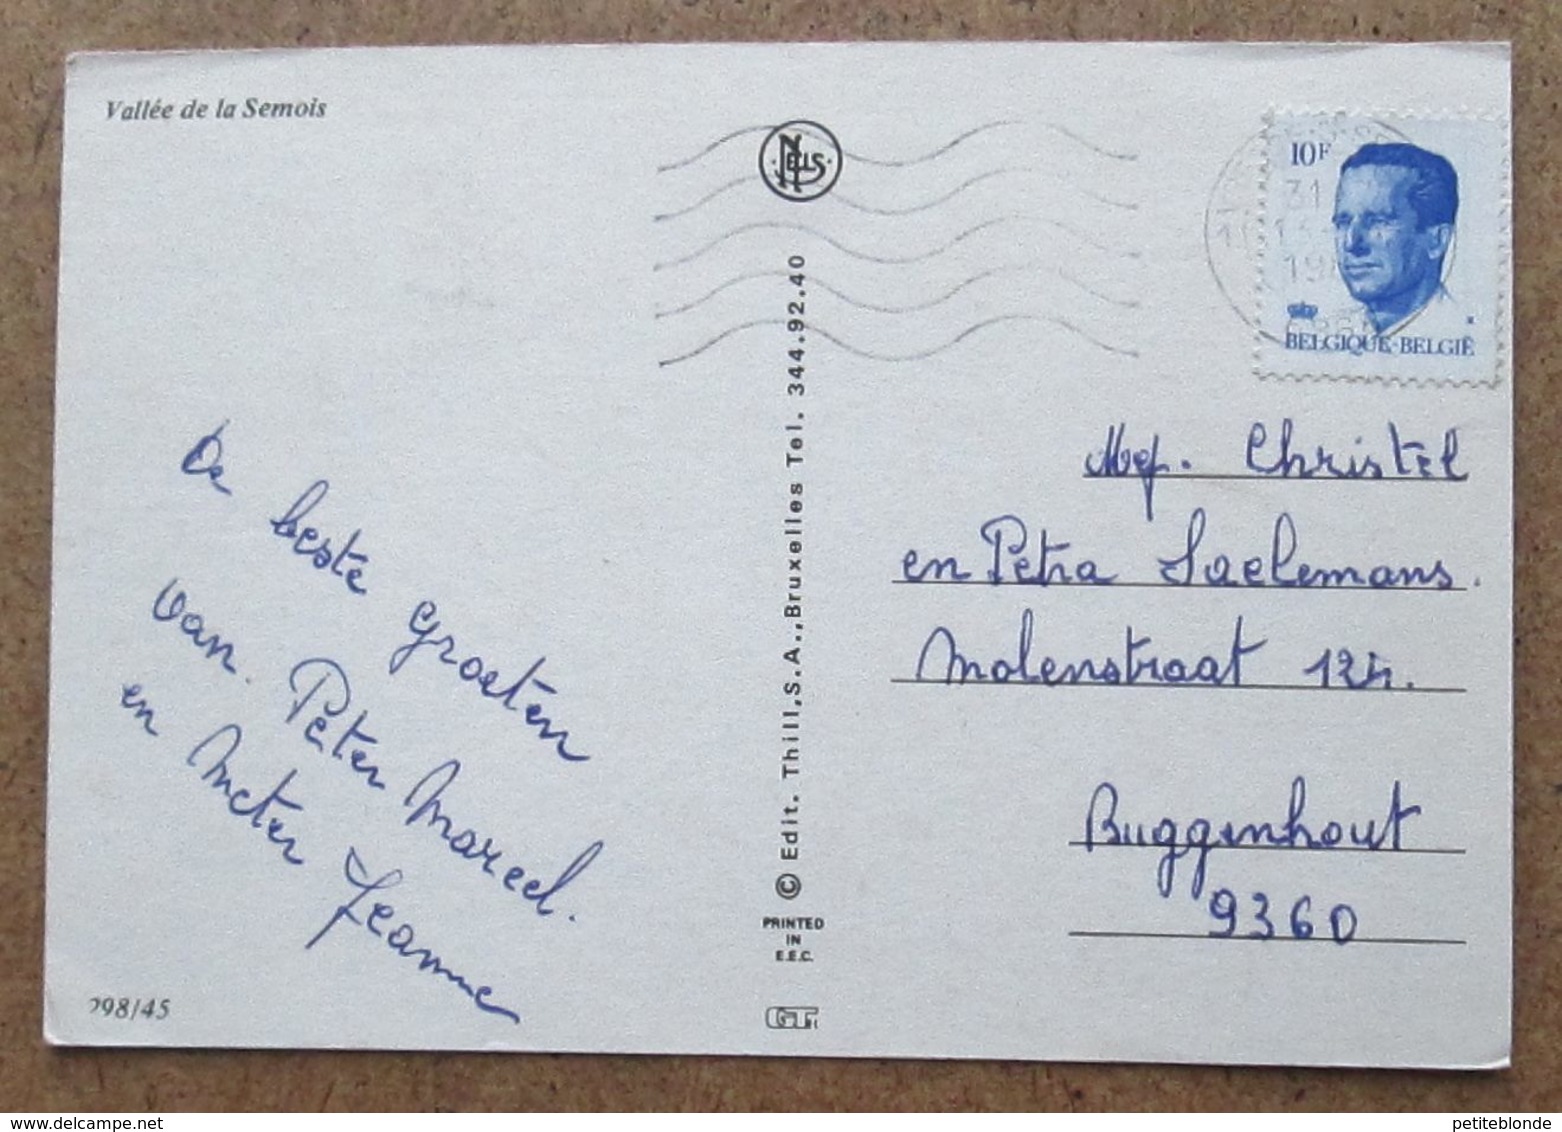 Vallée de la Semois
NELS
10F
31
13
19
BELGIQUE-BELGIË
De beste groeten
van. Peter Marcel.
en Meter Jeanne
298/45
© Edit. Thill, S.A., Bruxelles Tel. 344.92.40
PRINTED
IN
E.E.C.
Mej. Christel
en Petra Saelemans.
Molenstraat 124.
Buggenhout
9360
petiteblonde